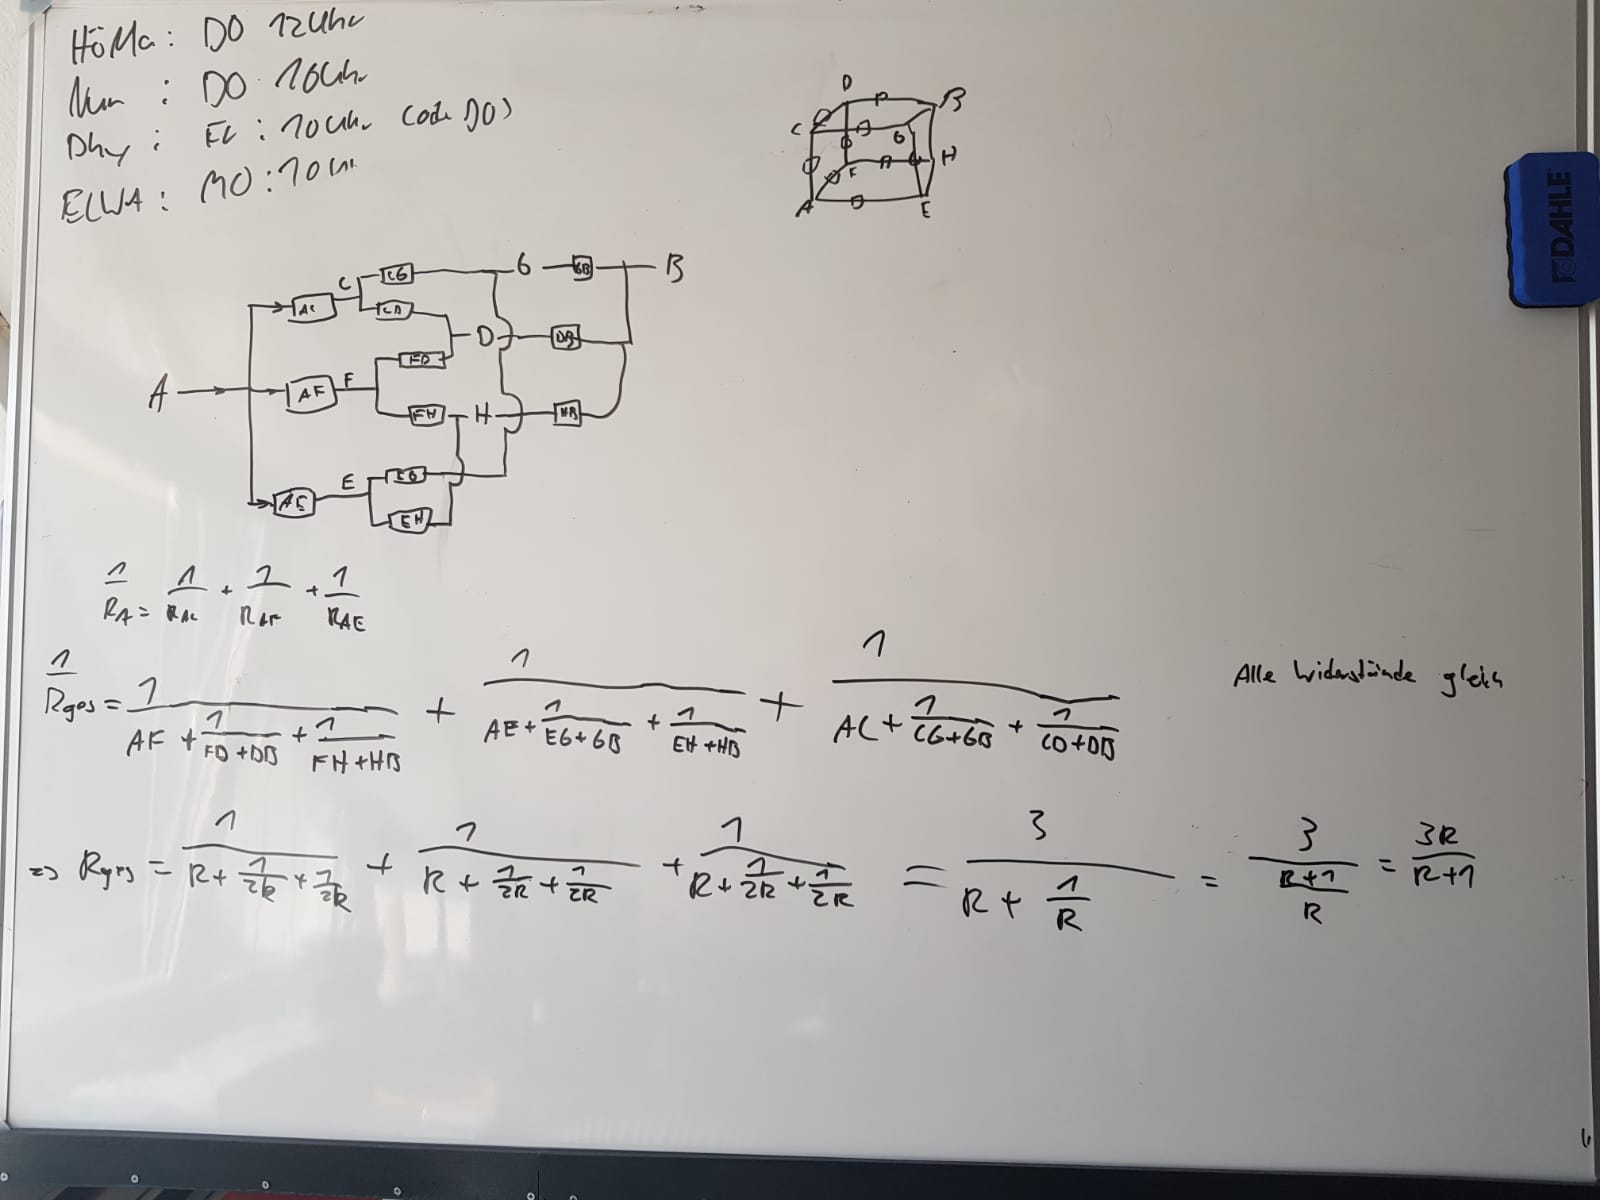 HöMa: DO 12Uhr
Num : DO 16Uhr
Dhy : EL : 10Uhr (ode DO)
ELWA : MO : 10Uhr
D B
C G
F H
A E
DAHLE
C CG G GB B
AC CD
D DB
FD
A AF F
FH H HB
E EG
AE EH
1/R_A = 1/R_AC + 1/R_AF + 1/R_AE
1/Rges = 1/(AF + 1/(FD+DB) + 1/(FH+HB)) + 1/(AE + 1/(EG+GB) + 1/(EH+HB)) + 1/(AC + 1/(CG+GB) + 1/(CD+DB)) Alle Widerstände gleich
=> Rges = 1/(R + 1/2R + 1/2R) + 1/(R + 1/2R + 1/2R) + 1/(R + 1/2R + 1/2R) = 3/(R + 1/R) = 3/((R+1)/R) = 3R/(R+1)